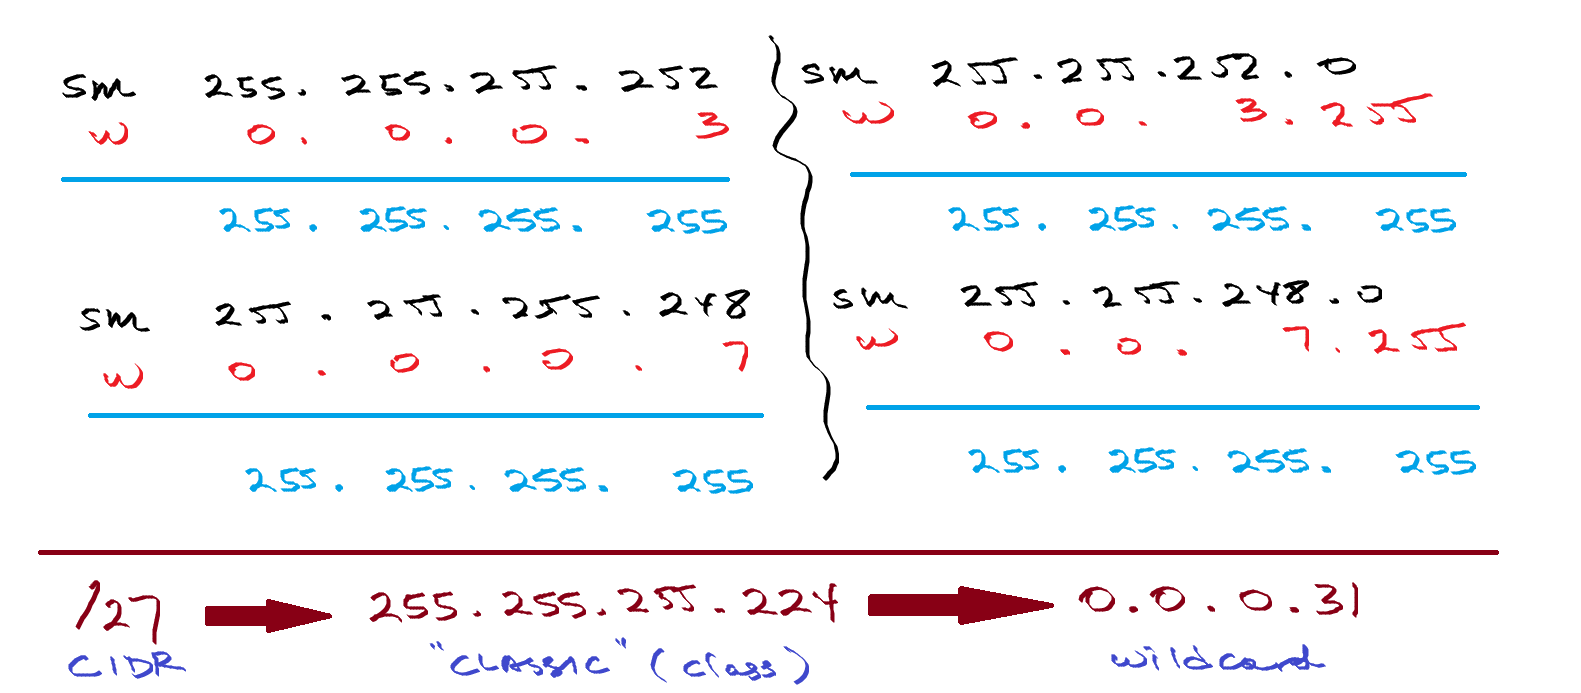 sm 255. 255. 255. 252
w 0. 0. 0. 3
255. 255. 255. 255
sm 255. 255. 255. 248
w 0. 0. 0. 7
255. 255. 255. 255
sm 255. 255. 252. 0
w 0. 0. 3. 255
255. 255. 255. 255
sm 255. 255. 248. 0
w 0. 0. 7. 255
255. 255. 255. 255
/27 255. 255. 255. 224 0. 0. 0. 31
CIDR "CLASSIC" (class) wildcard